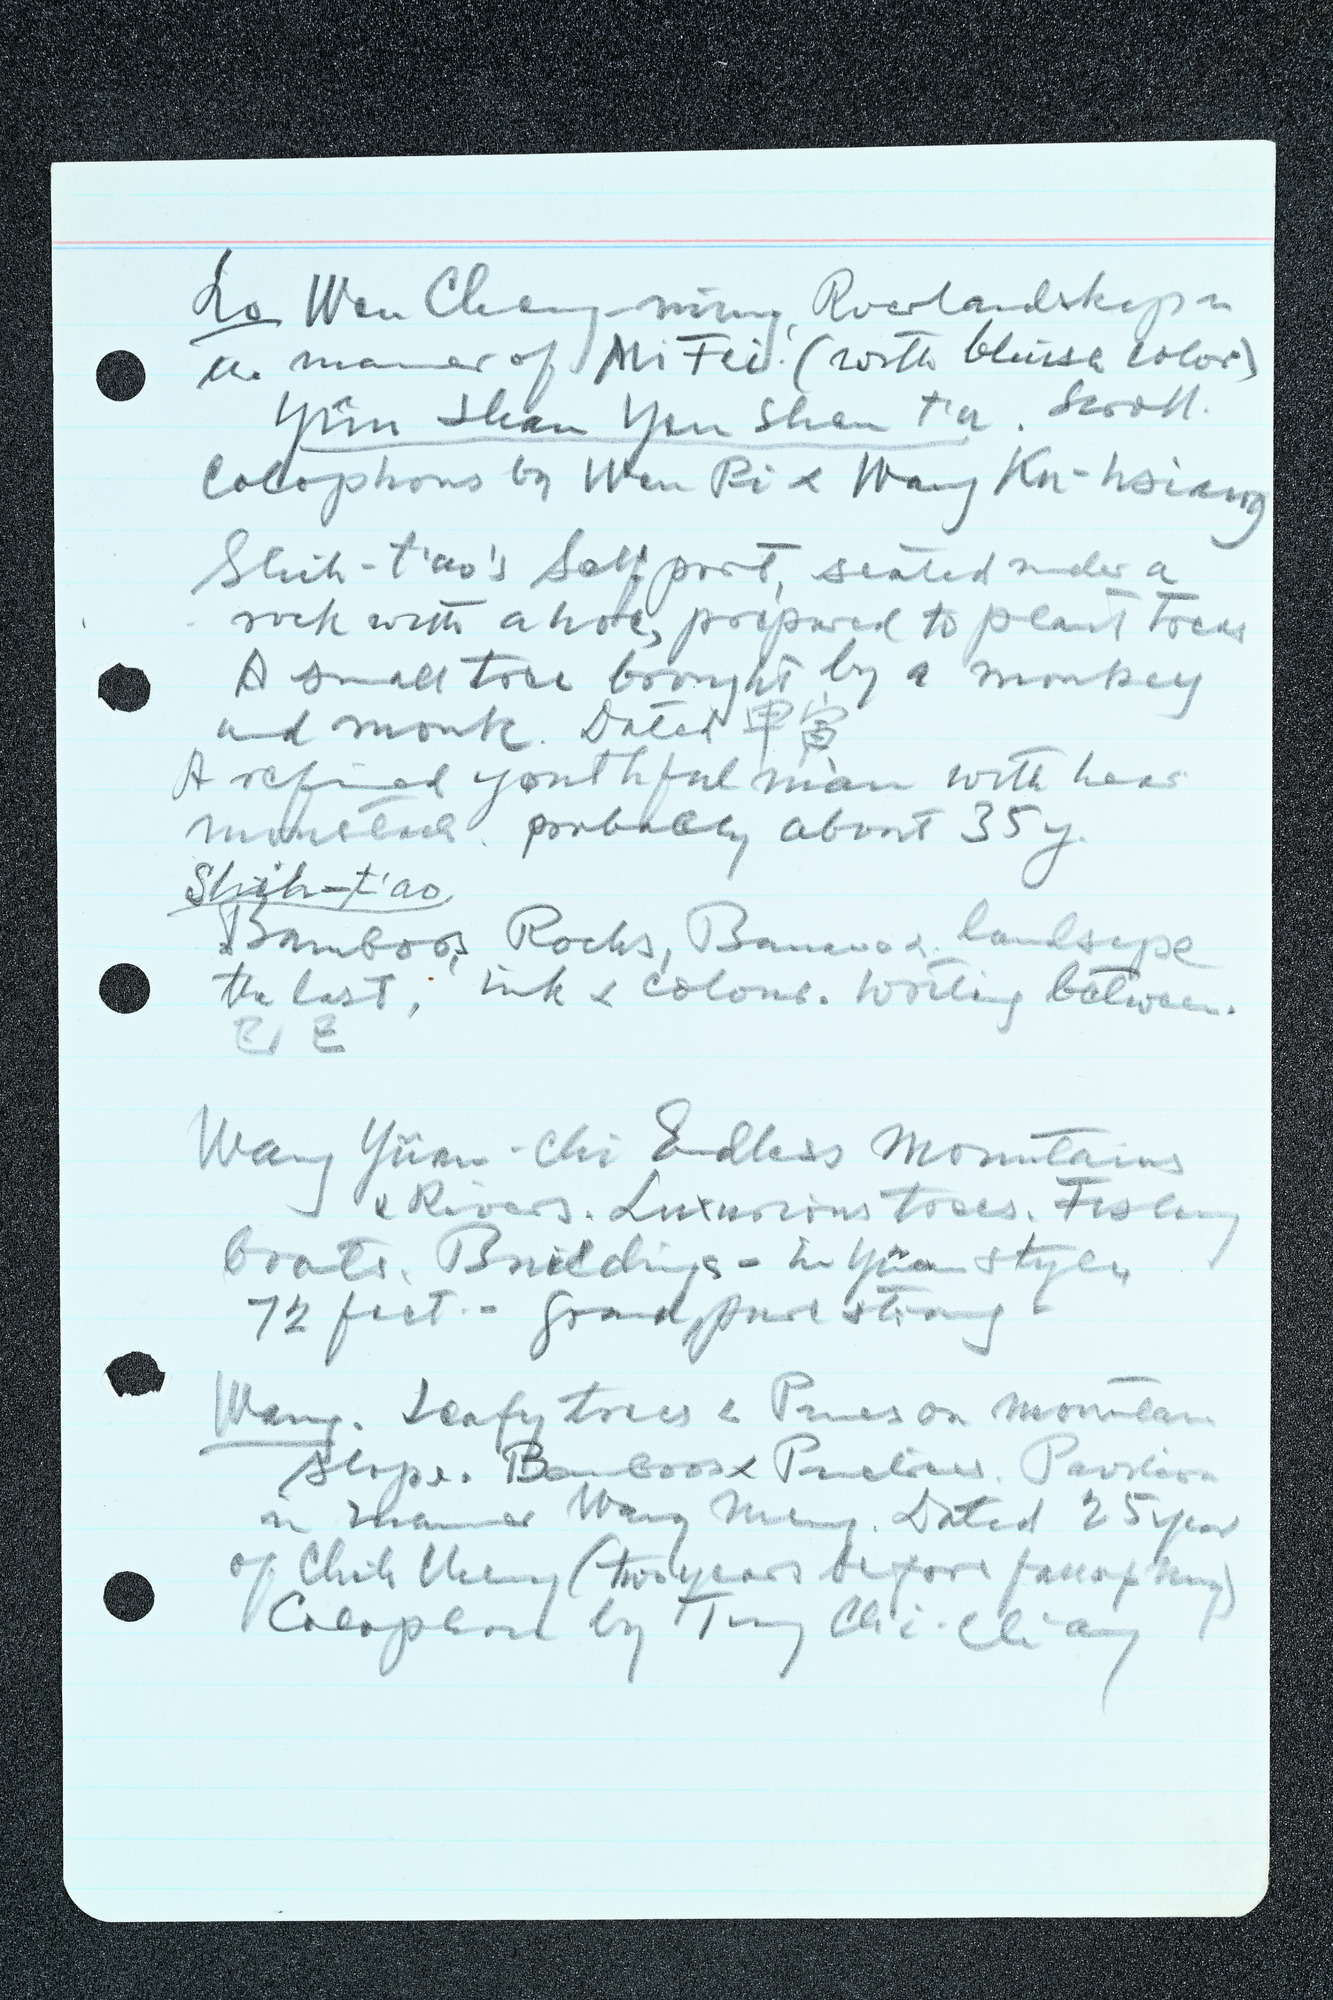 Lo Wen Cheng-ming, Riverlandskap in
the manner of Mi Fei. (with bluish color)
Yün shan Yen shan t'u. Scroll.
Colophons by Wen Pi & Wang Ku-hsiang
Shih-t'ao's Self port, seated under a
rock with a hoe, prepared to plant trees
A small tree brought by a monkey
and monk. Dated 甲寅
A refined youthful man with
moustache. probably about 35 y.
Shih-t'ao
Bamboos, Rocks, Bananas. landscape
the last, ink & colour. Writing between.
Wang Yüan-chi Endless Mountains
& Rivers. Luxurious trees. Fishing
boats. Buildings - in Yüan style,
72 feet - grand, pure strong
Wang. Leafy trees & Pines on mountain
slope. Bamboos & Pavilion
in manner Wang Meng. Dated 25 year
of Chih Cheng (two years before)
Colophon by Tung Ch'i-ch'ang